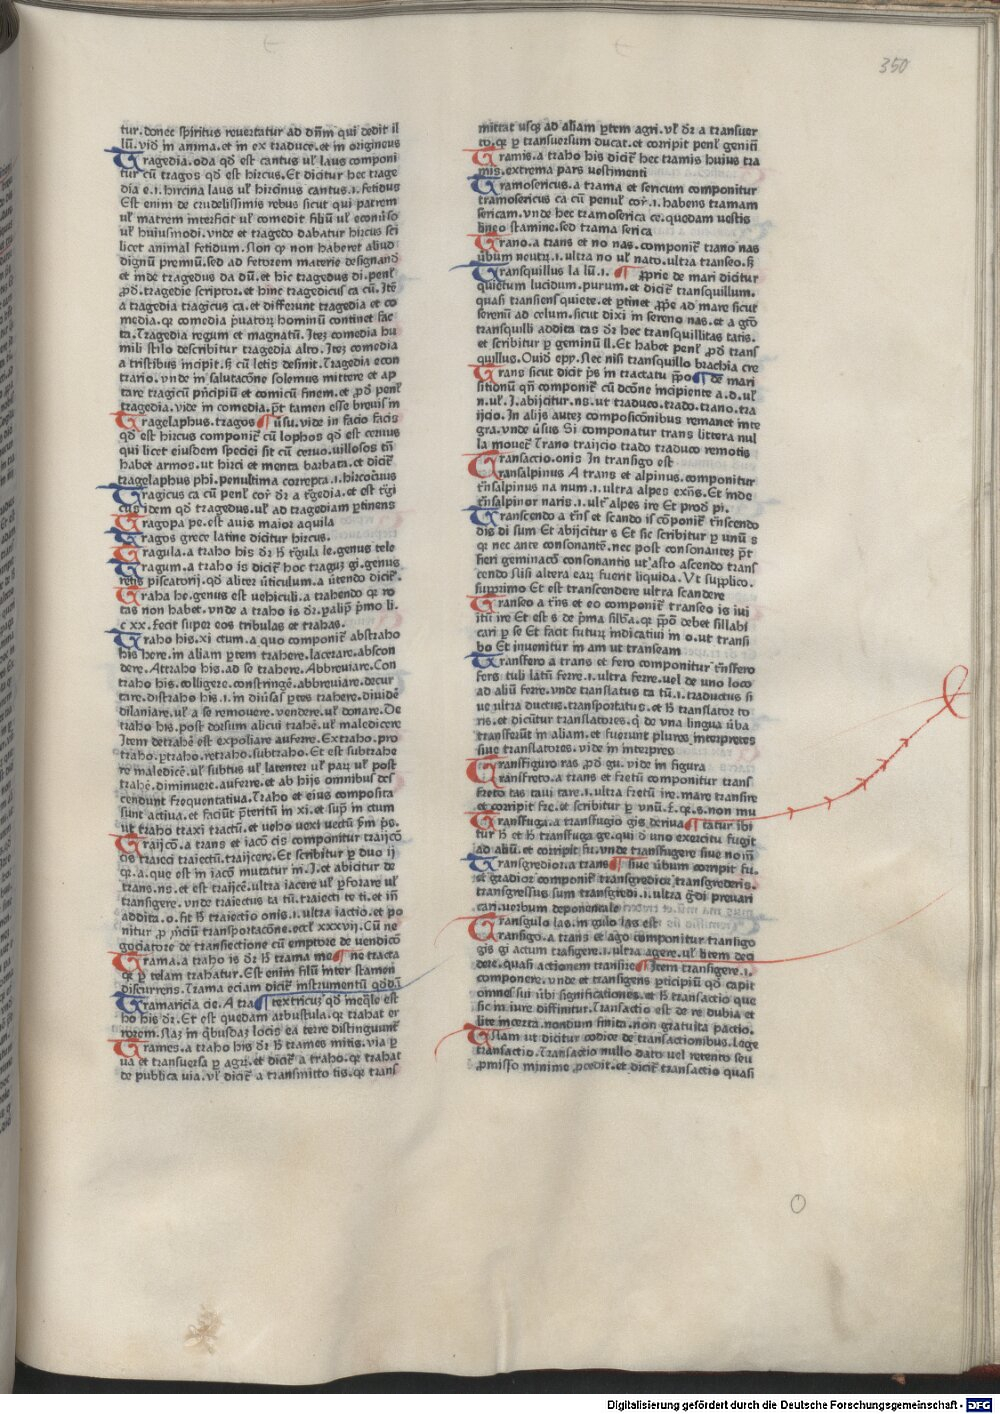 350
tur. donec spiritus revertatur ad dn̄m qui dedit il
lū. vid̄ in anima. et in ex traduce. et in origineus
Tragedia. oda qd̄ est cantus ul̄ laus componi
tur cū tragos qd̄ est hircus. Et dicitur hec trage
dia e. i. hircina laus ul̄ hircinus cantus. i. fetidus
Est enim de crudelissimis rebus sicut qui patrem
ul̄ matrem interficit ul̄ comedit filiū ul̄ econūso
ul̄ huiusmodi. vnde et tragedo dabatur hircus sci
licet animal fetidum. Non qꝛ non haberet aliud
dignū premiū. sed ad fetorem materie designand̄
et inde tragedus da dū. et hic tragedus di. penl̄
ꝓd̄. tragedie scriptor. et hinc tragedicus ca cū. Itē
a tragedia tragicus ca. et differunt tragedia et co
media. qꝛ comedia pͥuatoꝝ hominū continet fac
ta. Tragedia regum et magnatū. Iteꝫ comedia hu
mili stilo describitur tragedia alto. Iteꝫ comedia
a tristibus incipit. sꝫ cū letis desinit. Tragedia econ
trario. vnde in salutacōne solemus mittere et ap
tare tragicū pͥncipiū et comicū finem. et ꝓd̄ penl̄
tragedia. vide in comedia. pōt tamen esse brevis in
Tragelaphus. tragos ¶ ūsu. vide in facio facis
qd̄ est hircus componit̄ cū lophos qd̄ est cervus
qui licet eiusdem speciei sit cū cervo. uillosos tn̄
habet armos. ut hirci et menta barbata. et dicit̄
tragelaphus phi. penultima correpta. i. hircocervus
Tragicus ca cū penl̄ cor̄ dr̄ a tͣgedia. et est tͣgi
cus idem qd̄ tragedus. ul̄ ad tragediam ꝑtinens
Tragopa pe. est auis maior aquila
Tragos grece latine dicitur hircus.
Tragula. a traho is dr̄ hꝫ tͣgula le. genus tele
Tragum. a traho is dicit̄ hoc traguꝫ gi. genus
retis piscatorij. qd̄ aliter ūticulum. a ūtendo dicit̄.
Traha he. genus est uehiculi. a trahendo qꝛ ro
tas non habet. vnde a traho is dr̄. palip̄ pͥmo li.
c xx. fecit super eos tribulas et trahas.
Traho his. xi ctum. a quo componit̄ abstraho
his here. in aliam ꝑtem trahere. lacerare. abscon
dere. Attraho his. ad se trahere. Abbreuiare. Con
traho his. colligere. constringē. abbreuiare. decur
tare. distraho his. i. in diūsas ꝑtes trahere. diuidē
dilaniare. ul̄ a se remouere. vendere. ul̄ donare. De
traho his. post dorsum alicui trahē. ul̄ maledicere
Item detrahē est expoliare auferre. Extraho. pro
traho. ꝑtraho. retraho. subtraho. Et est subtrahe
re maledicē. ul̄ subtus ul̄ latenter ul̄ paꝝ ul̄ post
trahē. diminuere. auferre. et ab hijs omnibus des
cendunt frequentatiua. Traho et eius composita
sunt actiua. et faciūt pͥteritū in xi. et sup̄ in ctum
ut traho traxi tractū. et ueho uexi vectū pͥm pͥs.
Traijcō. a trans et iaciō cis componitur traijcō
cis traieci traiectū. traijcere. Et scribitur ꝑ duo ij
qꝛ. a. que est in iaciō mutatur in. I. et abicitur de
trans. ns. et est traijcē. ultra iacere ul̄ ꝑforare ul̄
transfigere. vnde traiectus ta tū. traiecti te ti. et in̄
addita. o. fit hꝫ traiectio onis. i. ultra iactio. et po
nitur ꝓ pͥciū transportacōne. eccl̄ xxxvij. Cū ne
gociatore de transiectione cū emptore de uendicō
Trama. a traho is dr̄ hꝫ trama me ¶ ne tracta
qꝛ ꝑ telam trahatur. Est enim filū inter stamen
discurrens. Trama eciam dicit̄ instrumentū qd̄dā
Tramaricia cie. A tra ¶ textricuꝫ qd̄ meq̄le est
ho his dr̄. Et est quedam arbustula. qꝛ trahat er
rorem. Naꝫ in qͥbusdaꝫ locis ea terre distinguunt̄
Trames. a traho his dr̄ hꝫ trames mitis. via ꝑ
ua et transuersa ꝑ agrū. et dicit̄ a traho. qꝛ trahat
de publica uia. Vl̄ dicit̄ a transmitto tis. qꝛ trans
mittat usqꝫ ad aliam ꝑtem agri. vl̄ dr̄ a transuer
to. qꝛ ꝑ transuersum ducat. et corripit penl̄ genitī
Tramis. a traho his dicit̄ hec tramis huius tra
mis. extrema pars uestimenti
Tramosericus. a trama et sericum componitur
tramosericus ca cū penul̄ cor̄. i. habens tramam
sericam. vnde hec tramoserica ce. quedam uestis
lineo stamine. sed trama serica
Trano. a trans et no nas. componit̄ trano nas
ūbum neutꝝ. i. ultra no ul̄ nato. ultra transeo. sꝫ
Transquillus la lū. i. ¶ ꝓprie de mari dicitur
quietum lucidum. purum. et dicit̄ transquillum.
quasi transiens quiete. et ꝑtinet ꝓpͥe ad mare sicut
serenū ad celum. sicut dixi in sereno nas. et a gtō
transquilli addita tas dr̄ hec transquillitas tatis.
et scribitur ꝑ geminū ll. Et habet penl̄ ꝓd̄ trans
quillus. Ouid̄ epy. Nec nisi transquillo brachia cre
Trans sicut dicit pͥs in tractatu pͥpō ¶ de mari
sitionū qn̄ componit̄ cū dcōne incipiente a. d. ul̄
n. ul̄. I. abijcitur. ns. ut traduco. trado. trano. tra
ijcio. In alijs auteꝫ composiconibus remanet inte
gra. vnde ūsus Si componatur trans littera nul
la mouet̄ Trano traijcio trado traduco remotis
Transactio. onis In transigo est
Transalpinus A trans et alpinus. componitur
trn̄salpinus na num. i. ultra alpes exn̄s. Et inde
trn̄salpinor naris. i. ultͣ alpes ire Et prod̄ pi.
Transcendo a trn̄s et scando is cōponit̄ trn̄scendo
dis di sum Et abijcitur s Et sic scribitur ꝑ unū s
qꝛ nec ante consonantē. nec post consonanteꝫ pōt
fieri geminacō consonantis ut asto ascendo trans
cendo Nisi altera eaꝝ fuerit liquida. Vt supplico.
supprimo Et est transcendere ultra scandere
Transeo a trn̄s et eo componit̄ transeo is iui
itū ire Et est s de pͥma silba. qꝛ pͥpō debet sillabi
cari ꝑ se Et facit futurꝝ indicatiui in o. ut transi
bo Et inuenitur in am ut transeam
Transfero a trans et fero componitur trn̄sfero
fers tuli latū ferre. i. ultra ferre uel de uno loco
ad aliū ferre. vnde translatus ta tū. i. traductus si
ue ultra ductus. transportatus. et hꝫ translator to
ris. et dicūtur translatores. qͥ de vna lingua ūba
transferūt in aliam. et fuerunt plures interpretes
siue translatores. vide in interpres
Transfiguro ras ꝓd̄ gu. vide in figura
Transfreto. a trans et fretū componitur trans
freto tas taui tare. i. ultra fretū ire. mare transire
et corripit fre. et scribitur ꝑ vnū. f. qꝛ. s. non mu
Transfuga. a transfugio gis deriua ¶ tatur ibi
tur hꝫ et hꝫ transfuga ge. qui d̄ uno exercitu fugit
ad aliū. et corripit fu. vnde transfugere siue noīn̄
Transgredior. a trans ¶ siue ūbum corripit fu.
et gradior componit̄ transgredior transgrederis.
transgressus sum transgredi. i. ultra gͣdi preuari
cari. uerbum deponentale
Transgulo las. in gulo las est
Transigo. a trans et ago componitur transigo
gis gi actum trāsigere. i. ultra agere. ul̄ litem deci
dere. quasi actionem transire ¶ Item transigere. i.
componere. vnde et transigens ꝑticipiū qd̄ capit
omnes sui ūbi significationes. et hꝫ transactio que
sic in iure diffinitur. Transactio est de re dubia et
lite incerta. nondum finita. non gratuita pactio.
Nam ut dicitur codice de transactionibus. Lege
transactio. Transactio nullo dato vel retento seu
ꝓmisso minime ꝓcedit. et dicit̄ transactio quasi
Digitalisierung gefördert durch die Deutsche Forschungsgemeinschaft - DFG